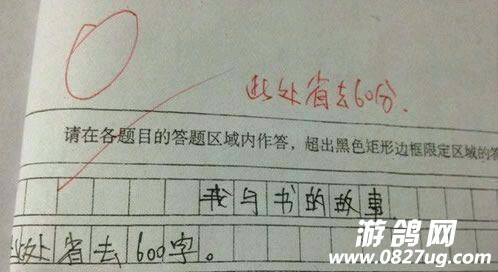 此处省去60分.
请在各题目的答题区域内作答，超出黑色矩形边框限定区域的答
我与书的故事
此处省去600字。
游鸽网
www.0827ug.com